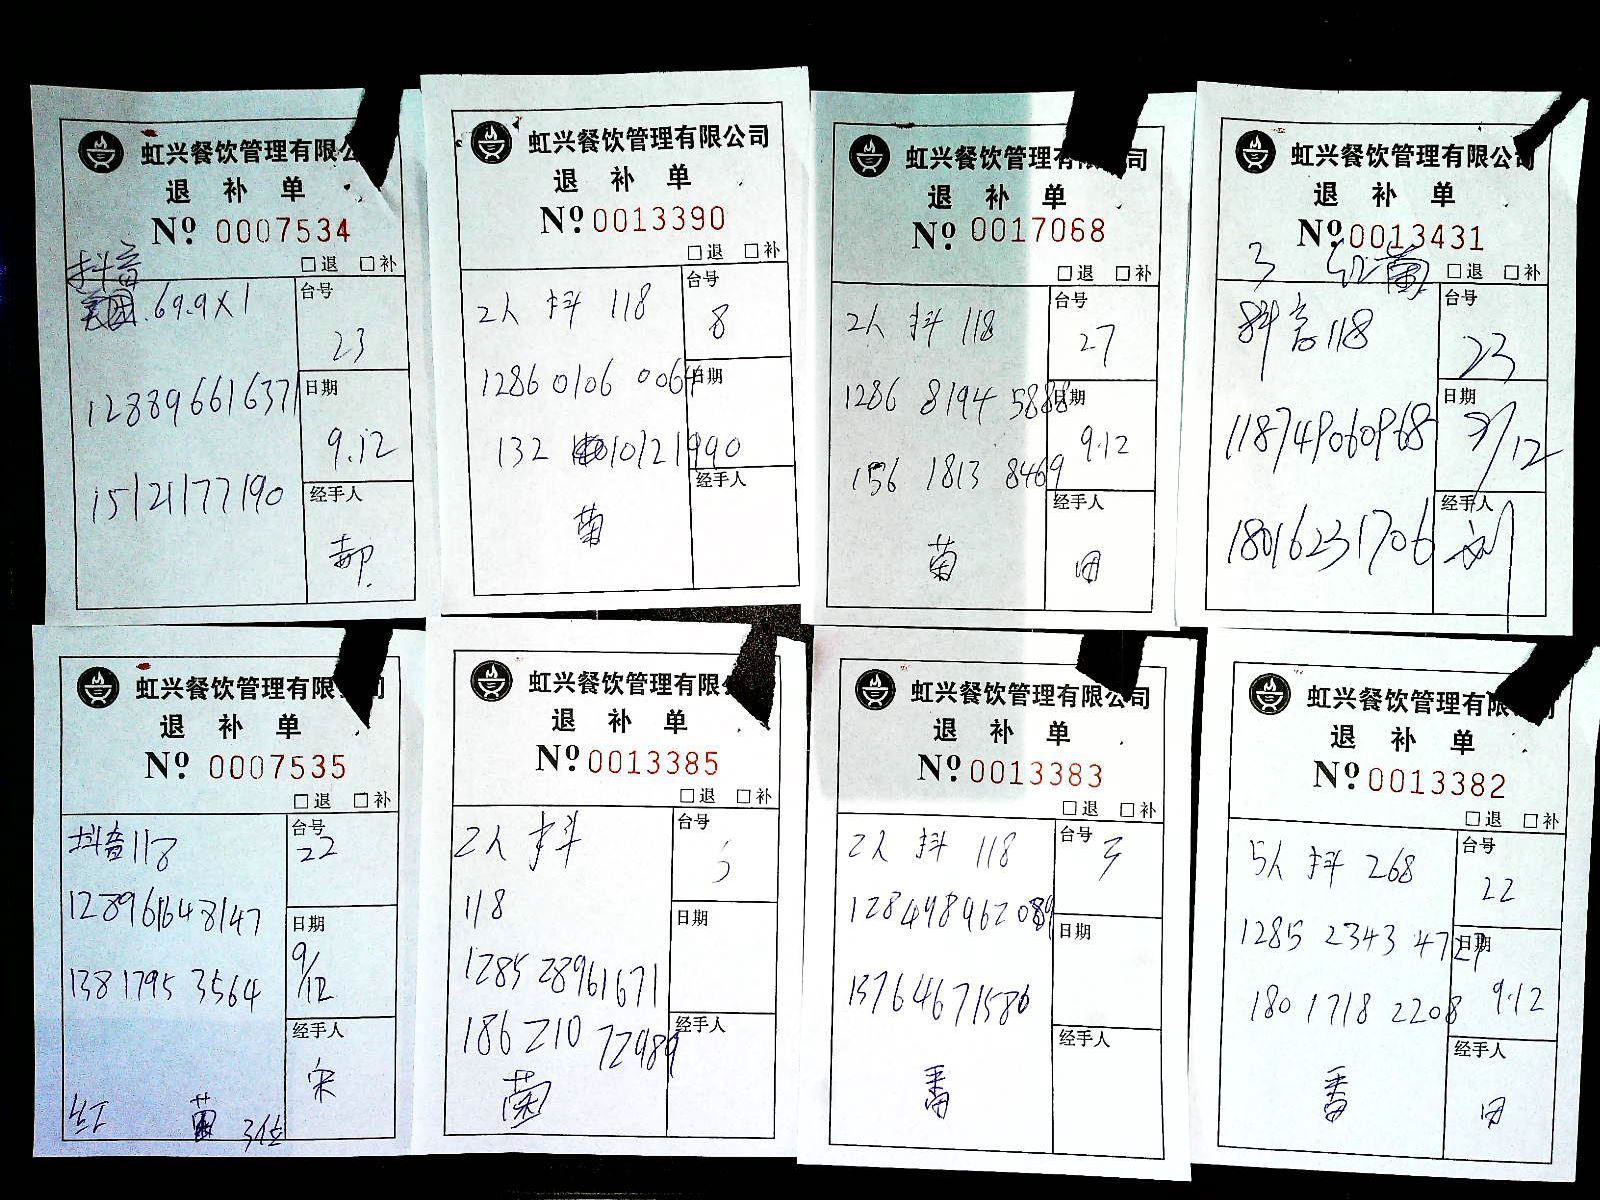 虹兴餐饮管理有限公
退补单
Nº 0007534
□退 □补
抖音
69.9X1
台号
23
128896616371
日期
9.12
15121177190
经手人
郝
虹兴餐饮管理有限公司
退补单
Nº 0013390
□退 □补
2人 抖 118
台号
8
1286 0106 0064
日期
132 10121990
经手人
菊
虹兴餐饮管理有限公司
退补单
Nº 0017068
□退 □补
2人 抖 118
台号
27
1286 8194 5888
日期
9.12
156 1813 8469
经手人
菊
田
虹兴餐饮管理有限公司
退补单
Nº 0013431
3 红
□退 □补
抖音118
台号
23
118749060968
日期
9/12
18016231706
经手人
刘
虹兴餐饮管理有限 司
退补单
Nº 0007535
□退 □补
抖音118
台号
22
128961648147
日期
9/12
138 1795 3564
经手人
宋
红 3位
虹兴餐饮管理有限
退补单
Nº 0013385
□退 □补
2人 抖
台号
118
日期
1285 28961671
186 210 72989
经手人
虹兴餐饮管理有限公司
退补单
Nº 0013383
□退 □补
2人 抖 118
台号
128498962089
日期
15764671586
经手人
番
虹兴餐饮管理有限 司
退补单
Nº 0013382
□退 □补
5人 抖 268
台号
22
1285 2343 4727
日期
9.12
180 1718 2208
经手人
番
田